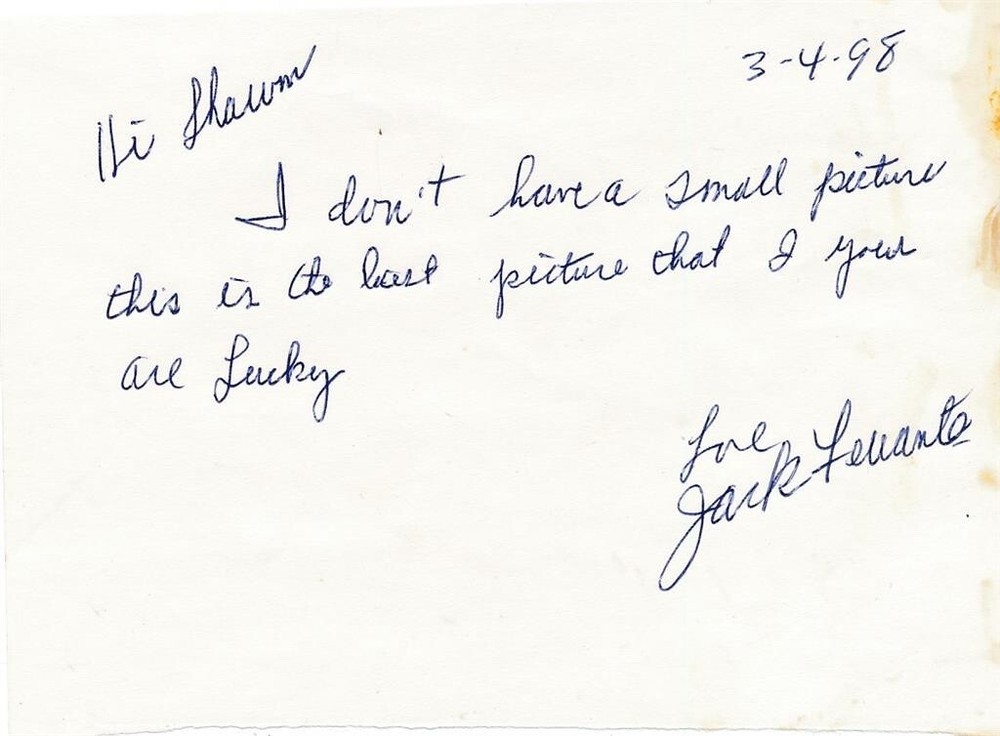 3-4-98
Hi Shawn
I don't have a small picture
this is the last picture that I your
are Lucky
Love
Jack